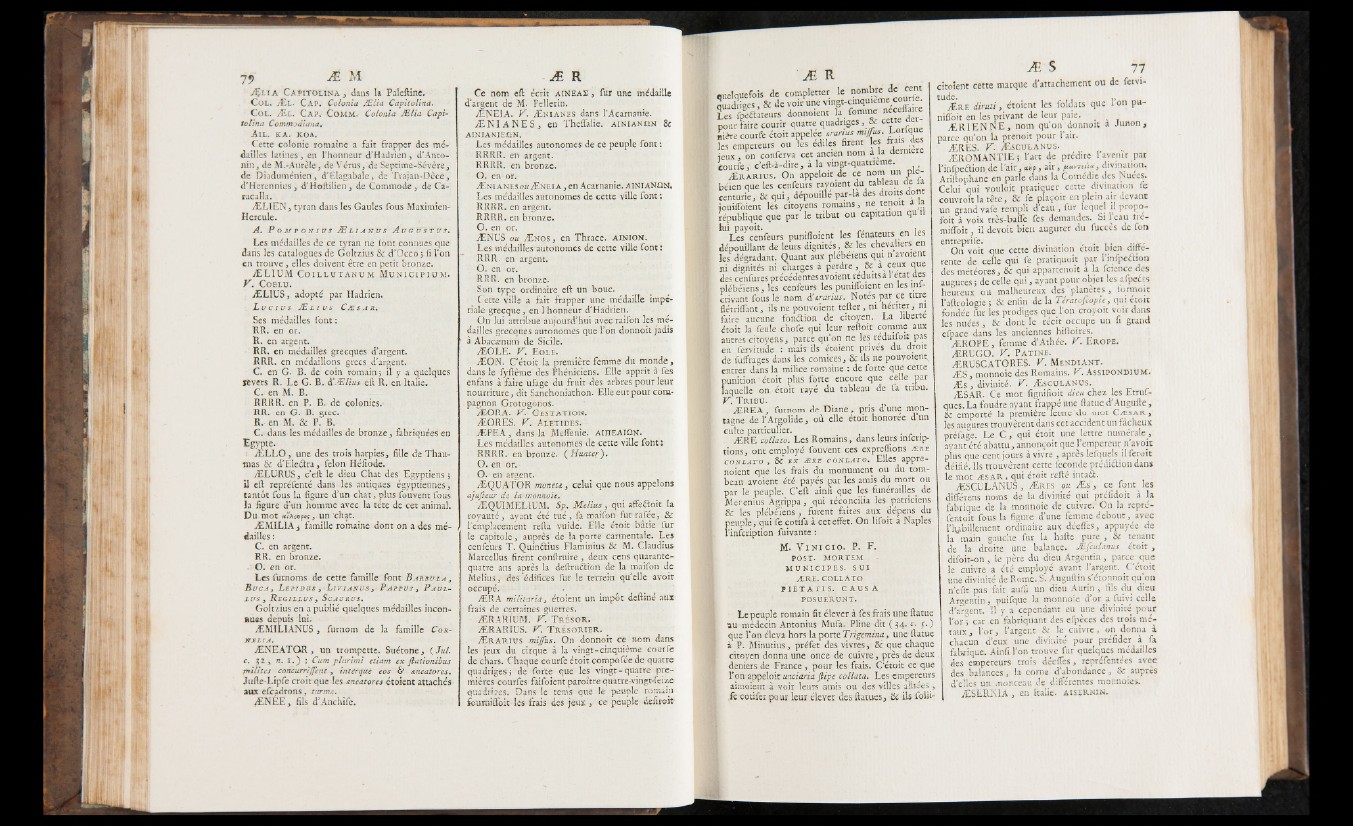 79 Æ M
ÆLIA CAPITOLINA, dans la Paleſtine.
COL. ÆL. CAP. Colonia Ælia Capitolina.
COL. ÆL. CAP. COMM. Colonia Ælia Capi-
tolina Commodiana.
AIL. KA. KOA.
Cette colonie romaine a fait frapper des mé-
dailles latines, en l'honneur d'Hadrien, d'Anto-
nin, de M.-Aurèle, de Vérus, de Septime-Sévère,
de Diaduménien, d'Elagabale, de Trajan-Dèce,
d'Herennius, d'Hoſtilien, de Commode, de Ca-
racalla.
ÆLIEN, tyran dans les Gaules ſous Maximien-
Hercule.
A. POMPONIUS ÆLIANUS AUGUSTUS.
Les médailles de ce tyran ne ſont connues que
dans les catalogues de Goltzius & d'Occo; ſi l'on
en trouve, elles doivent être en petit bronze.
ÆLIUM COILLUTANUM MUNICIPIUM.
V. COELU.
ÆLIUS, adopté par Hadrien.
LUCIUS ÆLIUS CÆSAR.
Ses médailles ſont:
RR. en or.
R. en argent.
RR. en médailles grecques d'argent.
RRR. en médaillons grecs d'argent.
C. en G. B. de coin romain; il y a quelques
revers R. Le G. B. d'Ælius eſt R. en Italie.
C. en M. B.
RRRR. en P. B. de colonies.
RR. en G. B. grec.
R. en M. & P. B.
C. dans les médailles de bronze, fabriquées en
Egypte.
ÆLLO, une des trois harpies, fille de Thau-
mas & d'Electra, ſelon Héſiode.
ÆLURUS, c'eſt le dieu Chat des Egyptiens;
il eſt repréſenté dans les antiques égyptiennes,
tantôt ſous la figure d'un chat, plus ſouvent ſous
la figure d'un homme avec la tête de cet animal.
Du mot αἴλουρος, un chat.
ÆMILIA, famille romaine dont on a des mé-
dailles:
C. en argent.
RR. en bronze.
O. en or.
Les ſurnoms de cette famille ſont BARBULA,
BUCA, LEPIDUS, LIVIANUS, PAPPUS, PAUL-
LUS, REGILLUS, SCAURUS.
Goltzius en a publié quelques médailles incon-
nues depuis lui.
ÆMILIANUS, ſurnom de la famille COR-
NELIA.
ÆNEATOR, un trompette. Suétone, (Jul.
c. 32, n. 2.): Cum plurimi etiam ex ſtationibus
milites concurriſſent, interque eos & æneatores.
Juſte-Lipſe croit que les æneatores étoient attachés
aux eſcadrons, turmæ.
ÆNÉE, fils d'Anchiſe.
Æ R
Ce nom eſt écrit ΑΙΝΕΑΣ, ſur une médaille
d'argent de M. Pellerin.
ÆNEIA. V. ÆNIANES dans l'Acarnanie.
ÆNIANES, en Theſſalie. ΑΙΝΙΑΝΩΝ &
ΑΙΝΙΑΝΙΕΩΝ.
Les médailles autonomes de ce peuple ſont:
RRRR. en argent.
RRRR. en bronze.
O. en or.
ÆNIANES ou ÆNEIA, en Acarnanie. ΑΙΝΙΑΝΩΝ.
Les médailles autonomes de cette ville ſont:
RRRR. en argent.
RRRR. en bronze.
O. en or.
ÆNUS ou ÆNOS, en Thrace. ΑΙΝΙΟΝ.
Les médailles autonomes de cette ville ſont:
RRR. en argent.
O. en or.
RRR. en bronze.
Son type ordinaire eſt un bouc.
Cette ville a fait frapper une médaille impé-
riale grecque, en l'honneur d'Hadrien.
On lui attribue aujourd'hui avec raiſon les mé-
dailles grecques autonomes que l'on donnoit jadis
à Abacænum de Sicile.
ÆOLE. V. EOLE.
ÆON. C'étoit la première femme du monde,
dans le ſyſtême des Phéniciens. Elle apprit à ſes
enfans à faire uſage du fruit des arbres pour leur
nourriture, dit Sanchoniathon. Elle eut pour com-
pagnon Protogonos.
ÆORA. V. GESTATION.
ÆORES. V. ALETIDES.
ÆPEA, dans la Meſſenie. ΑΙΠΕΑΙΩΝ.
Les médailles autonomes de cette ville ſont:
RRRR. en bronze. (Hunter).
O. en or.
O. en argent.
ÆQUATOR monetæ, celui que nous appelons
ajuſteur de la monnoie.
ÆQUIMELIUM. Sp. Melius, qui affectoit la
royauté, ayant été tué, ſa maiſon fut raſée, &
l'emplacement reſta vuide. Elle étoit bâtie ſur
le capitole, auprès de la porte carmentale. Les
cenſeurs T. Quinctius Flaminius & M. Claudius
Marcellus firent conſtruire, deux cens quarante-
quatre ans après la deſtruction de la maiſon de
Melius, des édifices ſur le terrein qu'elle avoit
occupé.
ÆRA militaria, étoient un impôt deſtiné aux
frais de certaines guerres.
ÆRARIUM. V. TRÉSOR.
ÆRARIUS. V. TRÉSORIER.
ÆRARIUS miſſus. On donnoit ce nom dans
les jeux du cirque à la vingt-cinquième courſe
de chars. Chaque courſe étoit compoſée de quatre
quadriges; de ſorte que les vingt-quatre pre-
mières courſes faiſoient paroître quatre-vingt-ſeize
quadriges. Dans le tems que le peuple romain
fourniſſoit les frais des jeux, ce peuple deſiroit
Æ R
quelquefois de completter le nombre de cent
quadriges, & de voir une vingt-cinquième courſe.
Les ſpectateurs donnoient la ſomme néceſſaire
pour faire courir quatre quadriges, & cette der-
nière courſe étoit appelée ærarius miſſus. Lorſque
les empereurs ou les édiles firent les frais des
jeux, on conſerva cet ancien nom à la dernière
courſe, c'eſt-à-dire, à la vingt-quatrième.
ÆRARIUS. On appeloit de ce nom un plé-
béien que les cenſeurs rayoient du tableau de ſa
centurie, & qui, dépouillé par-là des droits dont
jouiſſoient les citoyens romains, ne tenoit à la
république que par le tribut ou capitation qu'il
lui payoit.
Les cenſeurs puniſſoient les ſénateurs en les
dépouillant de leurs dignités, & les chevaliers en
les dégradant. Quant aux plébéiens qui n'avoient
ni dignités ni charges à perdre, & à ceux que
des cenſures précédentes avoient réduits à l'état des
plébéiens, les cenſeurs les puniſſoient en les inſ-
crivant ſous le nom d'ærarius. Notés par ce titre
flétriſſant, ils ne pouvoient teſter, ni hériter, ni
faire aucune fonction de citoyen. La liberté
étoit la ſeule choſe qui leur reſtoit comme aux
autres citoyens, parce qu'on ne les réduiſoit pas
en ſervitude: mais ils étoient privés du droit
de ſuffrages dans les comices, & ils ne pouvoient
entrer dans la milice romaine: de ſorte que cette
punition étoit plus forte encore que celle par
laquelle on étoit rayé du tableau de ſa tribu.
V. TRIBU.
ÆREA, ſurnom de Diane, pris d'une mon-
tagne de l'Argolide, où elle étoit honorée d'un
culte particulier.
ÆRE collato. Les Romains, dans leurs inſcrip-
tions, ont employé ſouvent ces expreſſions ÆRE
CONLATO, & EX ÆRE CONLATO. Elles appre-
noient que les frais du monument ou du tom-
beau avoient été payés par les amis du mort ou
par le peuple. C'eſt ainſi que les funérailles de
Menenius Agrippa, qui réconcilia les patriciens
& les plébéiens, furent faites aux dépens du
peuple, qui ſe cotiſa à cet effet. On liſoit à Naples
l'inſcription ſuivante:
M. VINICIO. P. F.
POST. MORTEM
MUNICIPES. SUI
ÆRE. COLLATO
PIETATIS. CAUSA
POSUERUNT.
Le peuple romain fit élever à ſes frais une ſtatue
au médecin Antonius Muſa. Pline dit (34. c. 5.)
que l'on éleva hors la porte Trigemina, une ſtatue
à P. Minutius, préfet des vivres, & que chaque
citoyen donna une once de cuivre, près de deux
deniers de France, pour les frais. C'étoit ce que
l'on appeloit unciaria ſtipe collata. Les empereurs
aimoient à voir leurs amis ou des villes alliées,
ſe cotiſer pour leur élever des ſtatues, & ils ſolli-
Æ S 77
citoient cette marque d'attachement ou de ſervi-
tude.
ÆRE diruti, étoient les ſoldats que l'on pu-
niſſoit en les privant de leur paie.
ÆRIENNE, nom qu'on donnoit à Junon,
parce qu'on la prenoit pour l'air.
ÆRES. V. ÆSCULANUS.
ÆROMANTIE; l'art de prédire l'avenir par
l'inſpection de l'air, αηρ, air, μαντεια, divination.
Ariſtophane en parle dans la Comédie des Nuées.
Celui qui vouloit pratiquer cette divination ſe
couvroit la tête, & ſe plaçoit en plein air devant
un grand vaſe rempli d'eau, ſur lequel il propo-
ſoit à voix très-baſſe ſes demandes. Si l'eau fré-
miſſoit, il devoit bien augurer du ſuccès de ſon
entrepriſe.
On voit que cette divination étoit bien diffé-
rente de celle qui ſe pratiquoit par l'inſpection
des météores, & qui appartenoit à la ſcience des
augures; de celle qui, ayant pour objet les aſpects
heureux ou malheureux des planètes, formoit
l'aſtrologie; & enfin de la Tératoſcopie, qui étoit
fondée ſur les prodiges que l'on croyoit voir dans
les nuées, & dont le récit occupe un ſi grand
eſpace dans les anciennes hiſtoires.
ÆROPE, femme d'Athée. V. EROPE.
ÆRUGO. V. PATINE.
ÆRUSCATORES. V. MENDIANT.
ÆS, monnoie des Romains. V. ASSIPONDIUM.
ÆS, divinité. V. ÆSCULANUS.
ÆSAR. Ce mot ſignifioit dieu chez les Etruſ-
ques. La foudre ayant frappé une ſtatue d'Auguſte,
& emporté la première lettre du mot CÆSAR,
les augures trouvèrent dans cet accident un fâcheux
préſage. Le C, qui étoit une lettre numérale,
ayant été abattu, annonçoit que l'empereur n'avoit
plus que cent jours à vivre, après leſquels il ſeroit
déifié. Ils trouvèrent cette ſeconde prédiction dans
le mot ÆSAR, qui étoit reſté intact.
ÆSCULANUS, ÆRIS ou ÆS, ce ſont les
différens noms de la divinité qui préſidoit à la
fabrique de la monnoie de cuivre. On la repré-
ſentoit ſous la figure d'une femme debout, avec
l'habillement ordinaire aux déeſſes, appuyée de
la main gauche ſur la haſte pure, & tenant
de la droite une balance. Æſculanus étoit,
diſoit-on, le père du dieu Argentin, parce que
le cuivre a été employé avant l'argent. C'étoit
une divinité de Rome. S. Auguſtin s'étonnoit qu'on
n'eût pas fait auſſi un dieu Aurin, fils du dieu
Argentin, puiſque la monnoie d'or a ſuivi celle
d'argent. Il y a cependant eu une divinité pour
l'or; car en fabriquant des eſpèces des trois mé-
taux, l'or, l'argent & le cuivre, on donna à
chacun d'eux une divinité pour préſider à ſa
fabrique. Ainſi l'on trouve ſur quelques médailles
des empereurs trois déeſſes, repréſentées avec
des balances, la corne d'abondance, & auprès
d'elles un monceau de différentes monnoies.
ÆSERNIA, en Italie. AISERNIN.